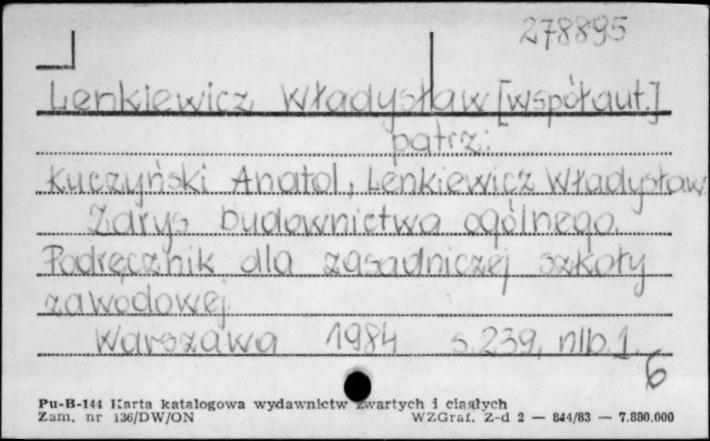 278895
Lenkiewicz Władysław [współaut.]
patrz:
Kuczyński Anatol, Lenkiewicz Władysław
Zarys budownictwa ogólnego.
Podręcznik dla zasadniczej szkoły
zawodowej
Warszawa 1984 s.239, nlb.1.
6
Pu-B-144 Karta katalogowa wydawnictw zwartych i ciągłych
Zam. nr 136/DW/ON WZGraf. Z-d 2 — 844/83 — 7.880.000